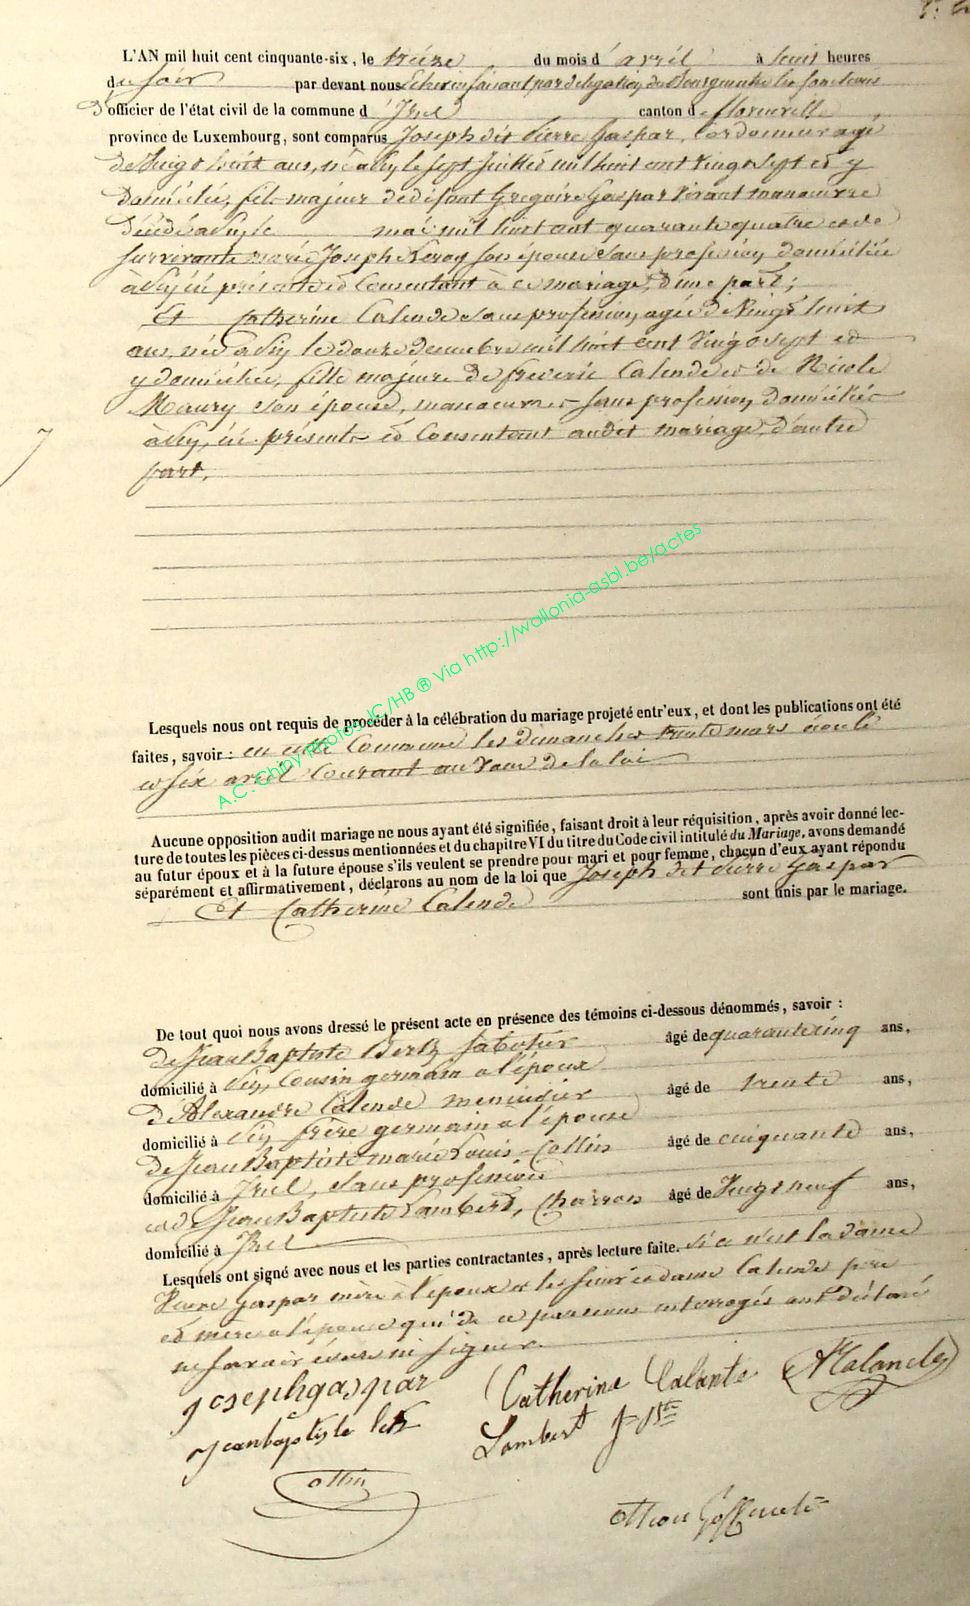 L'AN mil huit cent cinquante-six, le treize du mois d'avril à huit heures
du soir par devant nous Echevin faisant par délégation du Bourgmestre les fonctions
d'officier de l'état civil de la commune d'Izel canton de florenville
province de Luxembourg, sont comparus Joseph dit Pierre Gaspar, Cordonnier agé
de Vingt huit ans, né le sept Juillet mil huit cent Vingt sept et y
domicilié, fils majeur de défunt Gregoire Gaspar Vivant manoeuvre
décédé mai mil huit cent quarante quatre et de
survivante marie Joseph son épouse sans profession domiciliée
à ici présente et Consentant à ce mariage, d'une part;
Et Catherine Calende sans profession, agée de Vingt huit
ans, née le douze decembre mil huit cent Vingt sept et
y domiciliée, fille majeure de Calende et de Nicole
Maury son épouse, manoeuvre sans profession, domiciliés
ici présents et Consentant audit mariage, d'autre
part.
Lesquels nous ont requis de procéder à la célébration du mariage projeté entr'eux, et dont les publications ont été
faites, savoir : en cette Commune les dimanches trente mars écoulé
et six avril Courant au Vœu de la loi
A.C. Chiny Photos JC/HB ® Via http://wallonia-asbl.be/actes
Aucune opposition audit mariage ne nous ayant été signifiée, faisant droit à leur réquisition, après avoir donné lec-
ture de toutes les pièces ci-dessus mentionnées et du chapitre VI du titre du Code civil intitulé du Mariage, avons demandé
au futur époux et à la future épouse s'ils veulent se prendre pour mari et pour femme, chacun d'eux ayant répondu
séparément et affirmativement, déclarons au nom de la loi que Joseph dit Pierre Gaspar
Et Catherine Calende sont unis par le mariage.
De tout quoi nous avons dressé le présent acte en présence des témoins ci-dessous dénommés, savoir :
de Jean Baptiste sabotier âgé de quarante cinq ans,
domicilié à Cousin germain a l'époux
d'Alexandre Calende menuisier âgé de trente ans,
domicilié à frère germain a l'épouse
de Jean Baptiste marie Louis Collin âgé de cinquante ans,
domicilié à Izel, sans profession
et de Jean Baptiste Lambert, Charron âgé de Vingt neuf ans,
domicilié à Izel
Lesquels ont signé avec nous et les parties contractantes, après lecture faite. Si ce n'est la dame
Veuve Gaspar mère à l'époux et les sieur et dame Calende père
et mère a l'épouse qui de ce interrogés ont déclaré
ne savoir écrire ni signer.
joseph gaspar Catherine Calante
jean baptiste Lambert J Bte